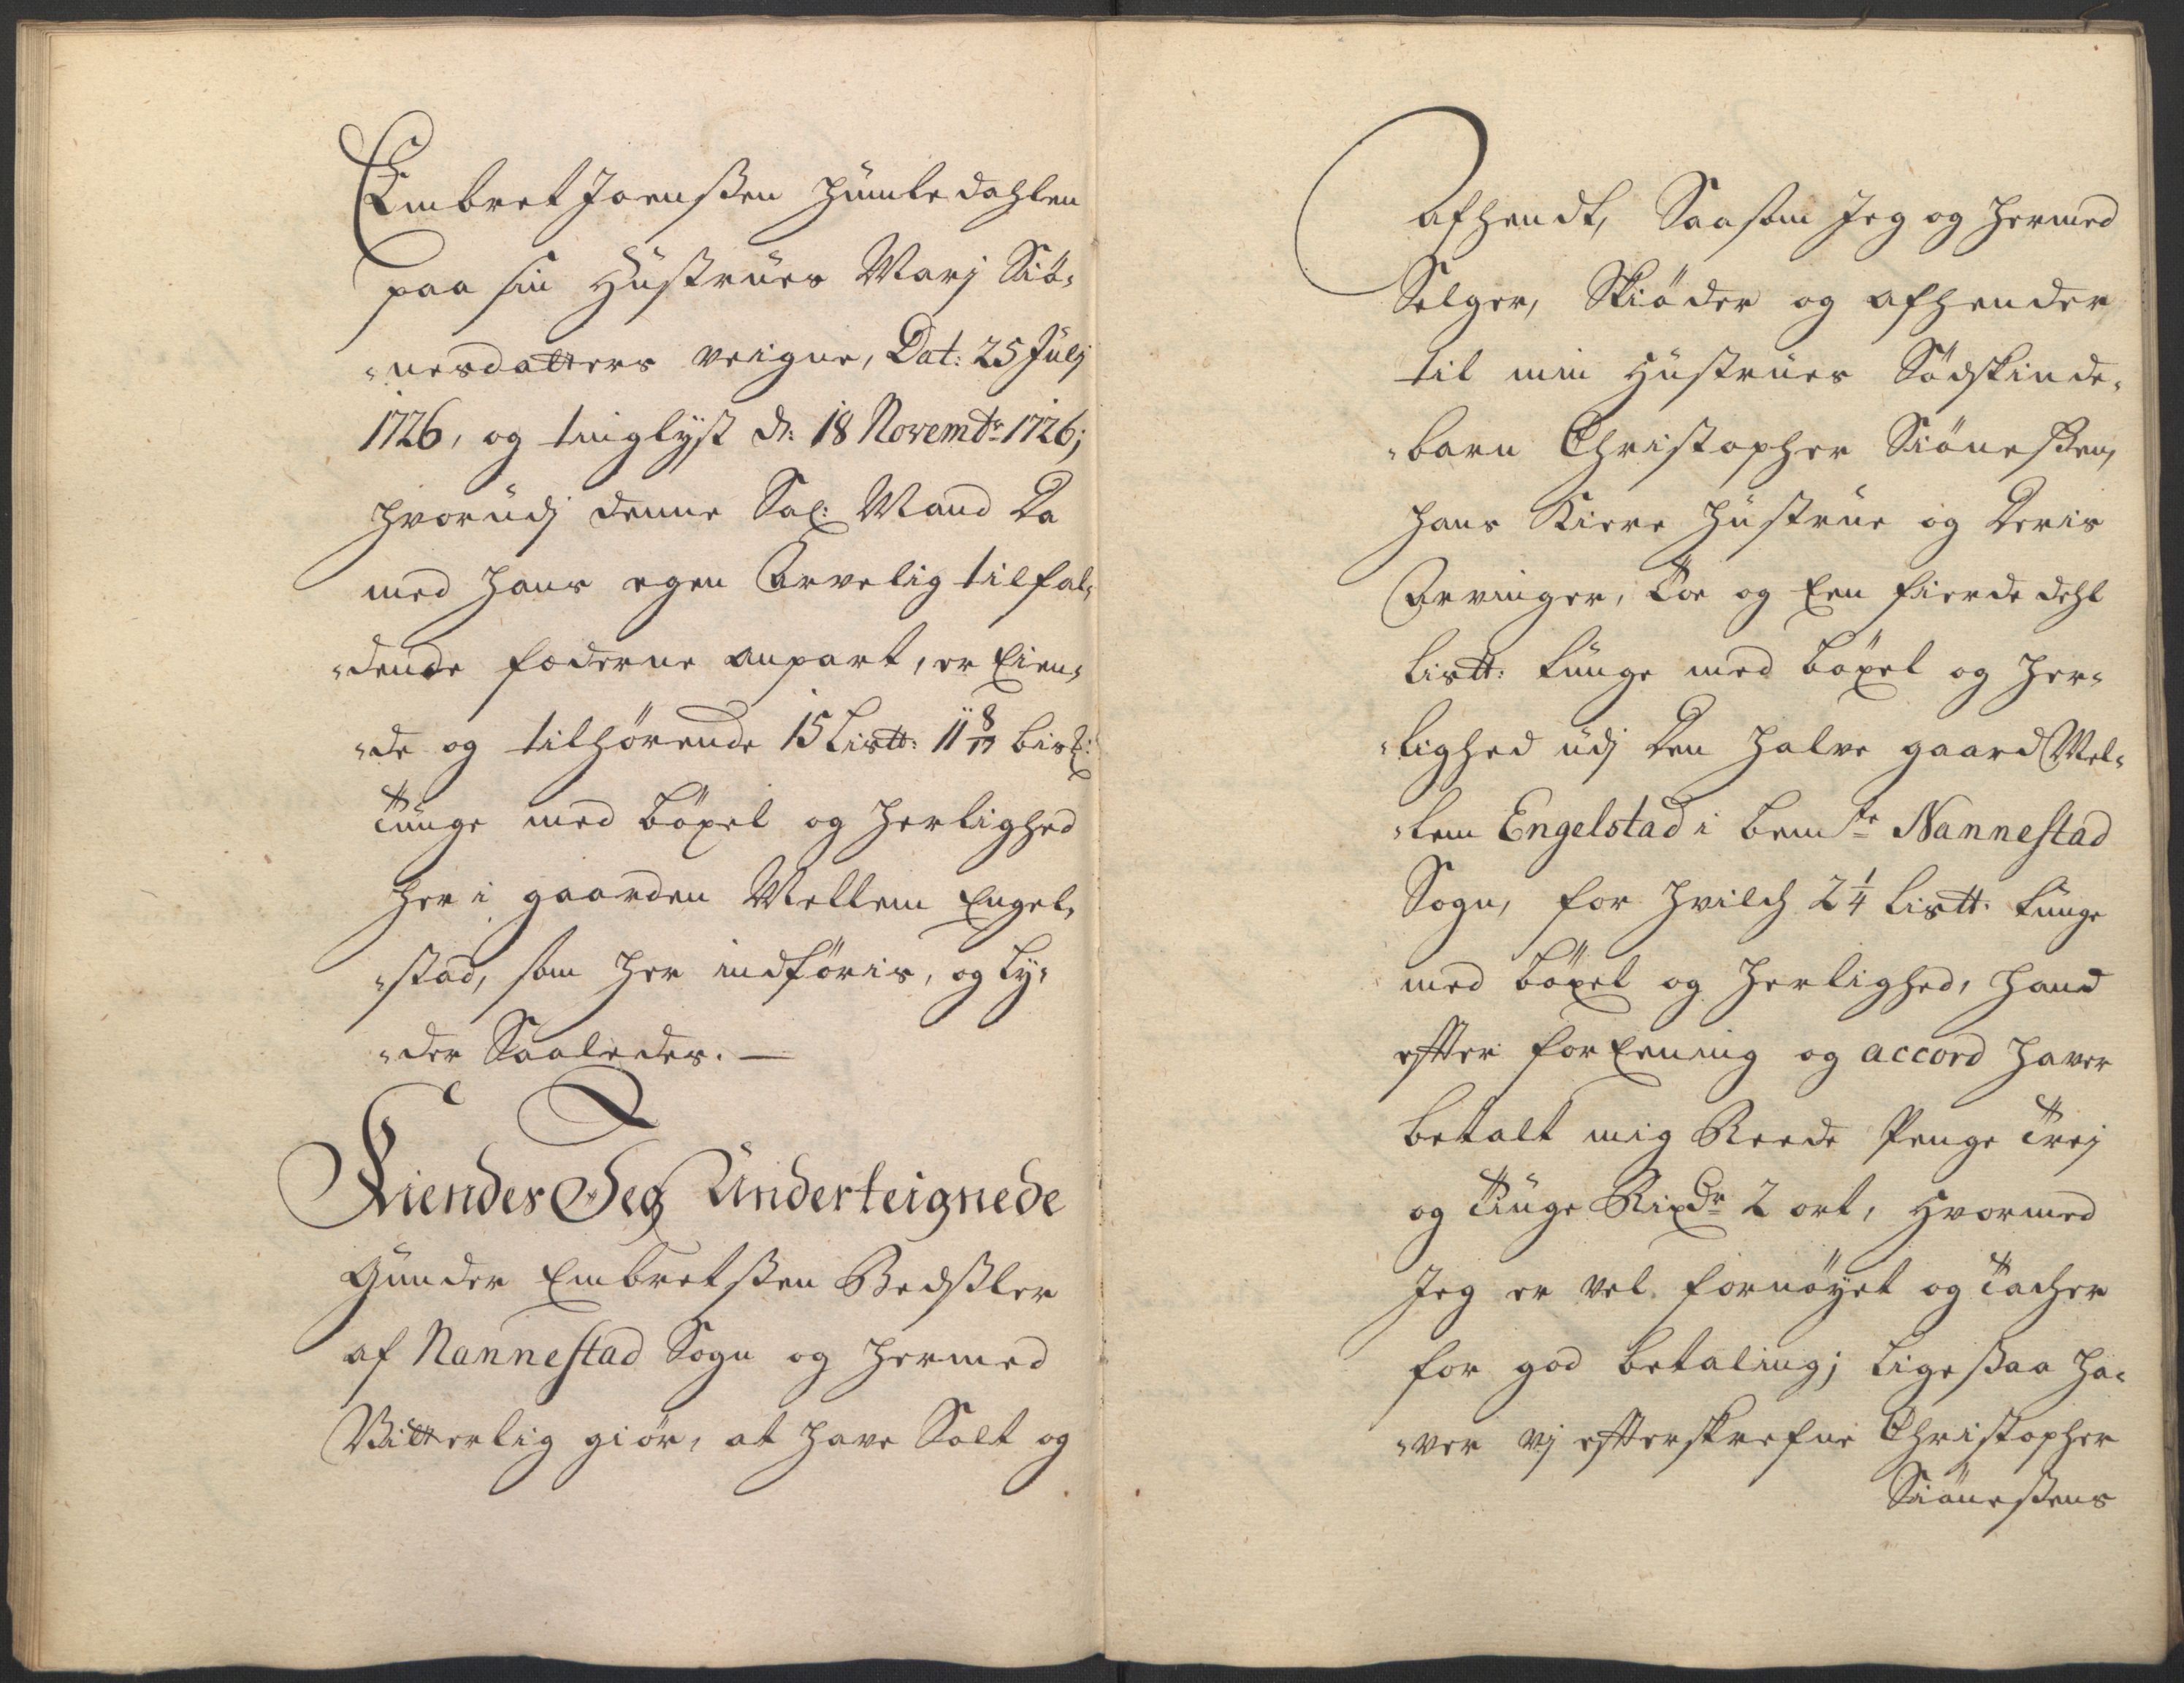 Embret Joensßen Humledahlen
paa sin Hustrues Marj Siø-
"nesdatters veigne, Dat: 25 Julj
1726, og tinglyst d: 18 Novembr 1726;
hvorudj denne Sal: Mand Da
med hans egen Arvelig tilfal-
"dende foderne anpart, er Eien-
"de og tilhørende 15 Listt: 11 8/17 bisl:
Tunge med böxel og herlighed
her i gaarden Mellem Engel-
"stad, som her indføris, og ly-
"der Saaledes. —
Kiendes Jeg Underteignede
Gunder Embretsßen Bedsßler
af Nannestad Sogn og hermed
Vitterlig giør, at have Solt og
afhendt, Saasom Jeg og hermed
Selger, Skiøder og afhender
til min Hustrues Södskinde-
"barn Christopher Siönesßen,
hans Kiere hustrue og Deris
Arvinger, Toe og Een fierde dehl
Listt: tunge med böxel og her-
"lighed udj Den halve gaard Mel-
"lem Engelstad i bemte Nannestad
Sogn, for hvilch 2 1/4 Listt: tunge
med böxel og herlighed, hand
efter forEening og accord haver
betalt mig Reede Penge Trej
og Tiuge Rixdr 2 ort, hvormed
Jeg er vel fornøyet og Tacher
for god betaling; ligesßaa ha-
"ver vj efterskrefne Christopher
Siönesßens